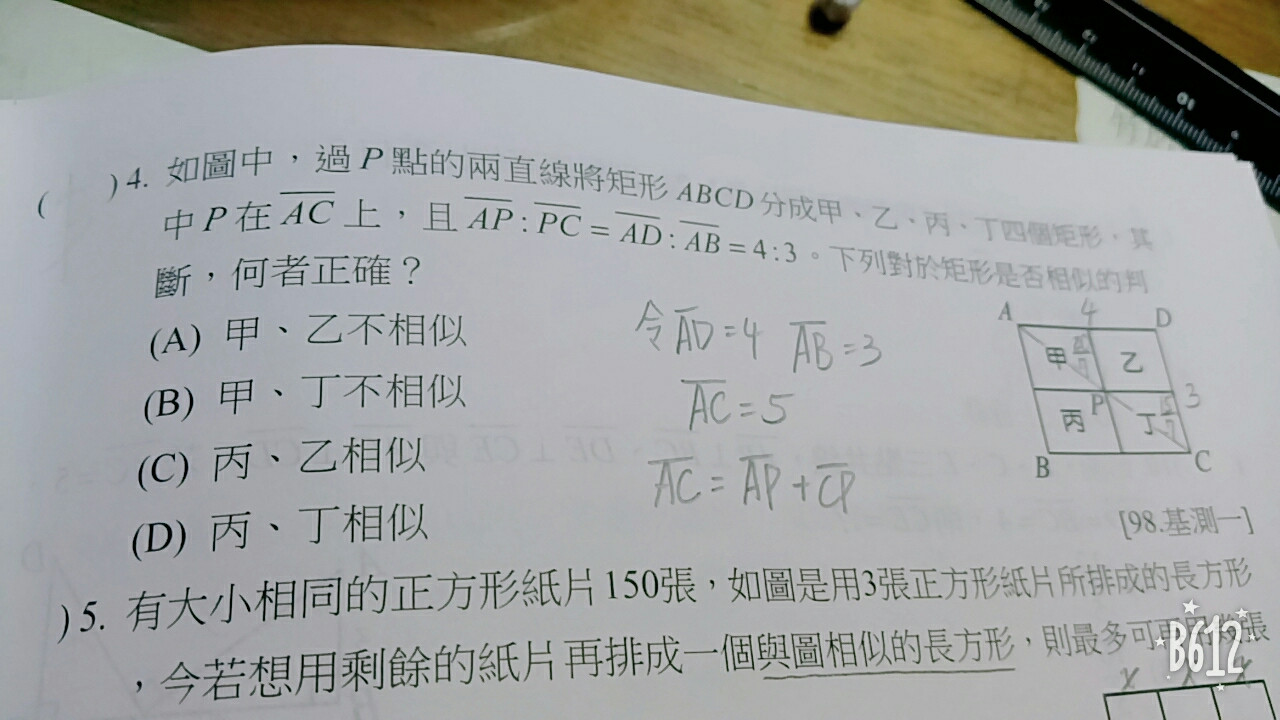 ( )4. 如圖中，過P點的兩直線將矩形ABCD分成甲、乙、丙、丁四個矩形，其
中P在AC上，且AP:PC=AD:AB=4:3。下列對於矩形是否相似的判
斷，何者正確？
(A) 甲、乙不相似
(B) 甲、丁不相似
(C) 丙、乙相似
(D) 丙、丁相似
令AD=4 AB=3
AC=5
AC=AP+CP
A 4 D
甲 乙
3
P
丙 丁
B C
[98.基測一]
)5. 有大小相同的正方形紙片150張，如圖是用3張正方形紙片所排成的長方形
，今若想用剩餘的紙片再排成一個與圖相似的長方形，則最多可再用 張
B612
x x x